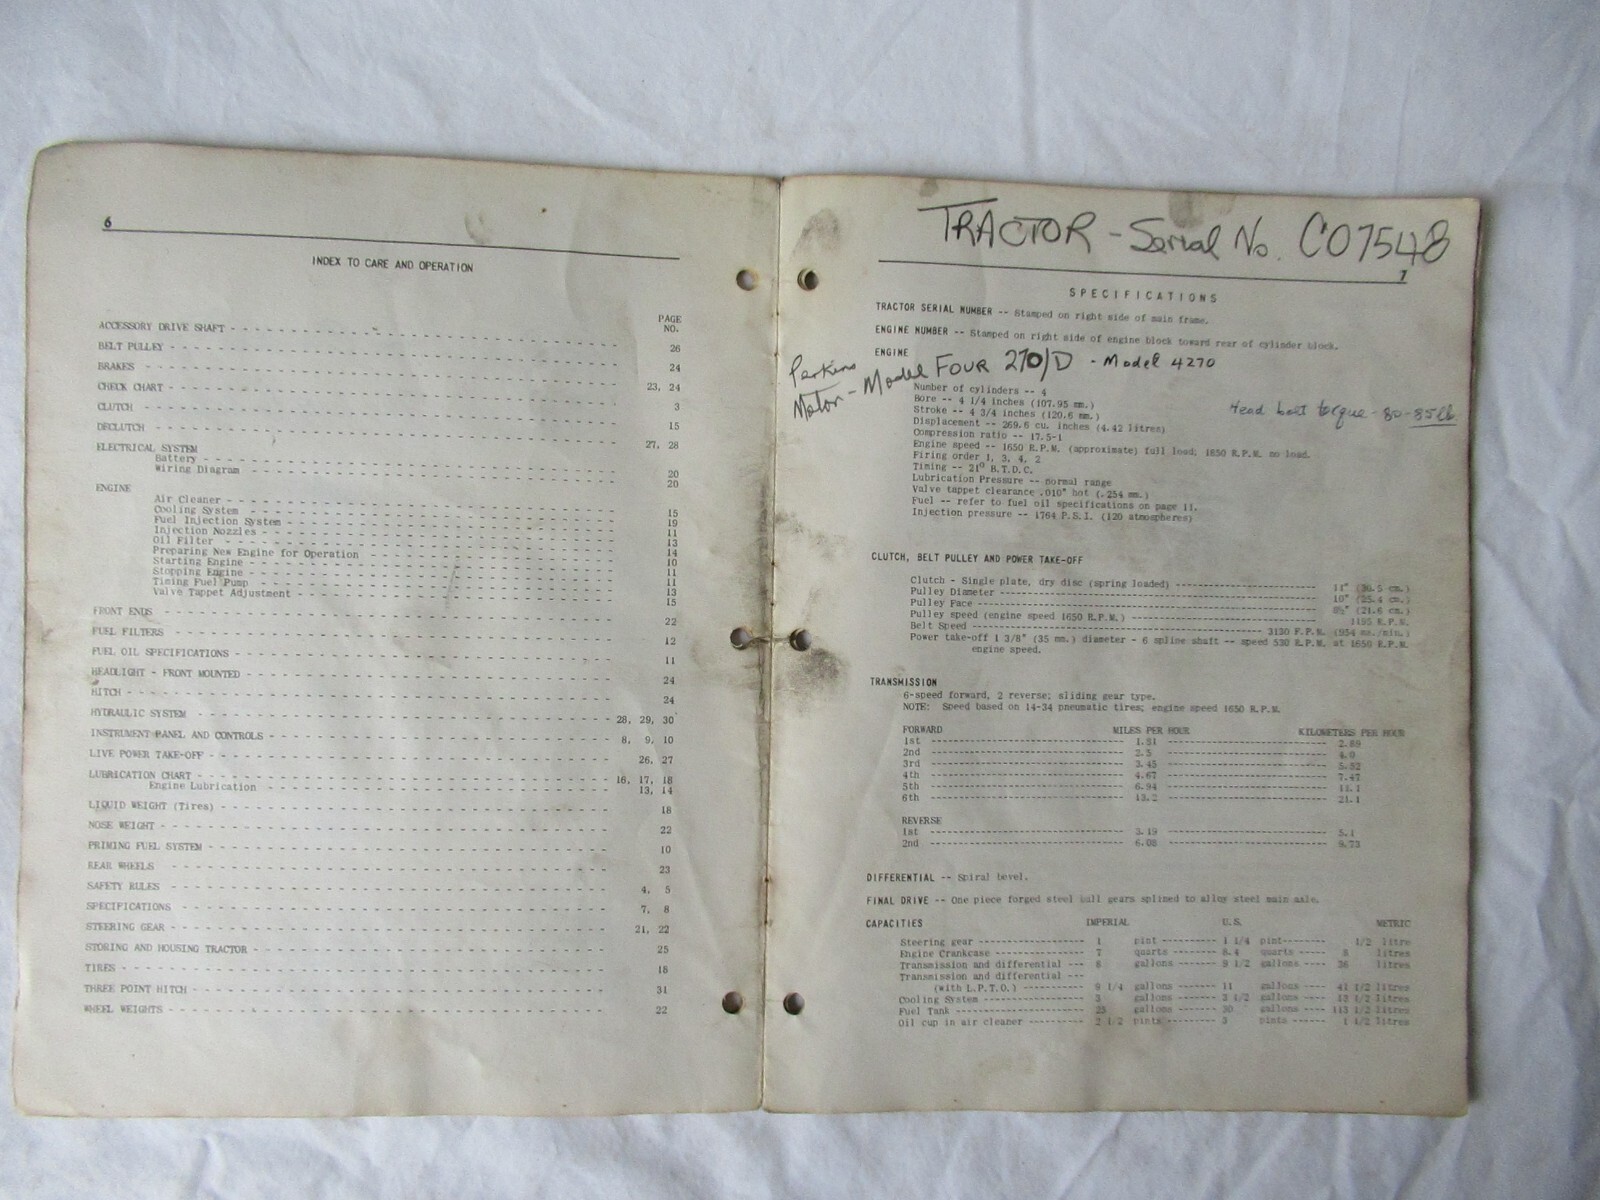 6
INDEX TO CARE AND OPERATION
PAGE
NO.
ACCESSORY DRIVE SHAFT 26
BELT PULLEY 24
BRAKES 23, 24
CHECK CHART 3
CLUTCH 15
DECLUTCH 27, 28
ELECTRICAL SYSTEM
Battery 20
Wiring Diagram 20
ENGINE
Air Cleaner 15
Cooling System 19
Fuel Injection System 11
Injection Nozzles 13
Oil Filter 14
Preparing New Engine for Operation 10
Starting Engine 11
Stopping Engine 11
Timing Fuel Pump 13
Valve Tappet Adjustment 15
FRONT ENDS 22
FUEL FILTERS 12
FUEL OIL SPECIFICATIONS 11
HEADLIGHT - FRONT MOUNTED 24
HITCH 24
HYDRAULIC SYSTEM 28, 29, 30
INSTRUMENT PANEL AND CONTROLS 8, 9, 10
LIVE POWER TAKE-OFF 26, 27
LUBRICATION CHART 16, 17, 18
Engine Lubrication 13, 14
LIQUID WEIGHT (Tires) 18
NOSE WEIGHT 22
PRIMING FUEL SYSTEM 10
REAR WHEELS 23
SAFETY RULES 4, 5
SPECIFICATIONS 7, 8
STEERING GEAR 21, 22
STORING AND HOUSING TRACTOR 25
TIRES 18
THREE POINT HITCH 31
WHEEL WEIGHTS 22
TRACTOR - Serial No. C07548
7
SPECIFICATIONS
TRACTOR SERIAL NUMBER -- Stamped on right side of main frame.
ENGINE NUMBER -- Stamped on right side of engine block toward rear of cylinder block.
ENGINE
Perkins
Motor - Model FOUR 270/D - Model 4270
Number of cylinders -- 4
Bore -- 4 1/4 inches (107.95 mm.)
Head bolt torque - 80-85 lb.
Stroke -- 4 3/4 inches (120.6 mm.)
Displacement -- 269.6 cu. inches (4.42 litres)
Compression ratio -- 17.5-1
Engine speed -- 1650 R.P.M. (approximate) full load; 1850 R.P.M. no load.
Firing order 1, 3, 4, 2
Timing -- 21º B.T.D.C.
Lubrication Pressure -- normal range
Valve tappet clearance .010" hot (.254 mm.)
Fuel -- refer to fuel oil specifications on page 11.
Injection pressure -- 1764 P.S.I. (120 atmospheres)
CLUTCH, BELT PULLEY AND POWER TAKE-OFF
Clutch - Single plate, dry disc (spring loaded)
Pulley Diameter 10" (25.4 cm.)
Pulley Face 8½" (21.6 cm.)
Pulley speed (engine speed 1650 R.P.M.) 1195 R.P.M.
Belt Speed 3130 F.P.M. (954 ms./min.)
Power take-off 1 3/8" (35 mm.) diameter - 6 spline shaft -- speed 530 R.P.M. at 1650 R.P.M.
engine speed.
TRANSMISSION
6-speed forward, 2 reverse; sliding gear type.
NOTE: Speed based on 14-34 pneumatic tires; engine speed 1650 R.P.M.
FORWARD MILES PER HOUR KILOMETERS PER HOUR
1st
2nd 2.5 4.0
3rd 3.45
4th 4.67 7.47
5th 6.94 11.1
6th 13.2 21.1
REVERSE
1st 3.19 5.1
2nd 6.08 9.73
DIFFERENTIAL -- Spiral bevel.
FINAL DRIVE -- One piece forged steel bull gears splined to alloy steel main axle.
CAPACITIES IMPERIAL U.S. METRIC
Steering gear 1 pint 1 1/4 pint 1/2 litre
Engine Crankcase 7 quarts 8.4 quarts 8 litres
Transmission and differential 8 gallons 9 1/2 gallons 36 litres
Transmission and differential
(with L.P.T.O.) 9 1/4 gallons 11 gallons 41 1/2 litres
Cooling System 3 gallons 3 1/2 gallons 13 1/2 litres
Fuel Tank 25 gallons 30 gallons 113 1/2 litres
Oil cup in air cleaner 2 1/2 pints 3 pints 1 1/2 litres